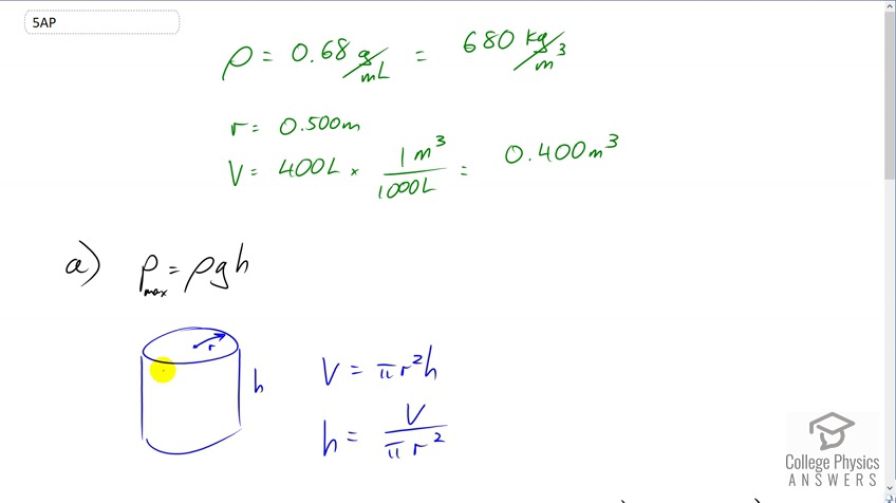 5AP
ρ = 0.68 g/mL = 680 kg/m³
r = 0.500m
V = 400L × 1m³/1000L = 0.400m³
a) P_max = ρgh
r
h
V = πr²h
h = V/πr²
College Physics
ANSWERS